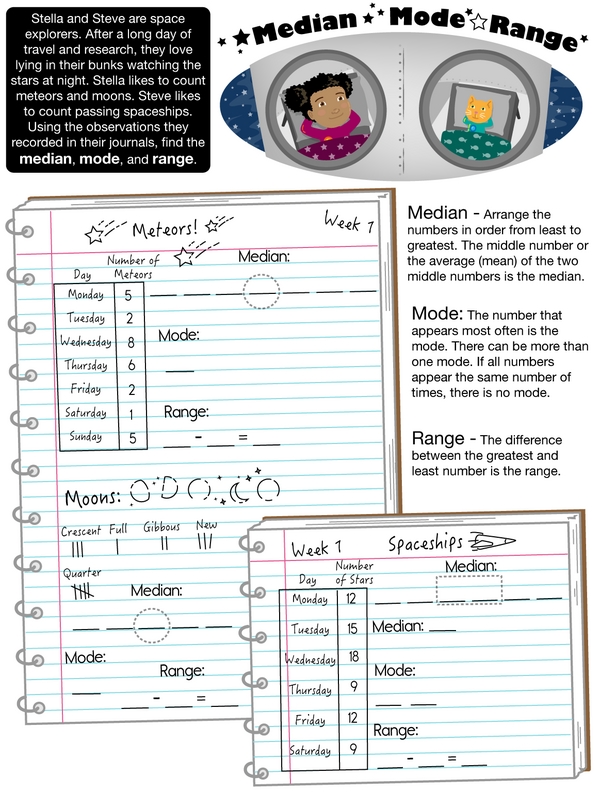 Stella and Steve are space
explorers. After a long day of
travel and research, they love
lying in their bunks watching the
stars at night. Stella likes to count
meteors and moons. Steve likes
to count passing spaceships.
Using the observations they
recorded in their journals, find the
median, mode, and range.
Median Mode Range
Meteors!
Week 1
Number of
Day Meteors
Monday 5
Tuesday 2
Wednesday 8
Thursday 6
Friday 2
Saturday 1
Sunday 5
Median:
Mode:
Range:
- =
Median - Arrange the
numbers in order from least to
greatest. The middle number or
the average (mean) of the two
middle numbers is the median.
Mode: The number that
appears most often is the
mode. There can be more than
one mode. If all numbers
appear the same number of
times, there is no mode.
Range - The difference
between the greatest and
least number is the range.
Moons:
Crescent Full Gibbous New
Quarter
Median:
Mode:
Range:
- =
Week 1 Spaceships
Number
Day of Stars
Monday 12
Tuesday 15
Wednesday 18
Thursday 9
Friday 12
Saturday 9
Median:
Median:
Mode:
Range:
- =